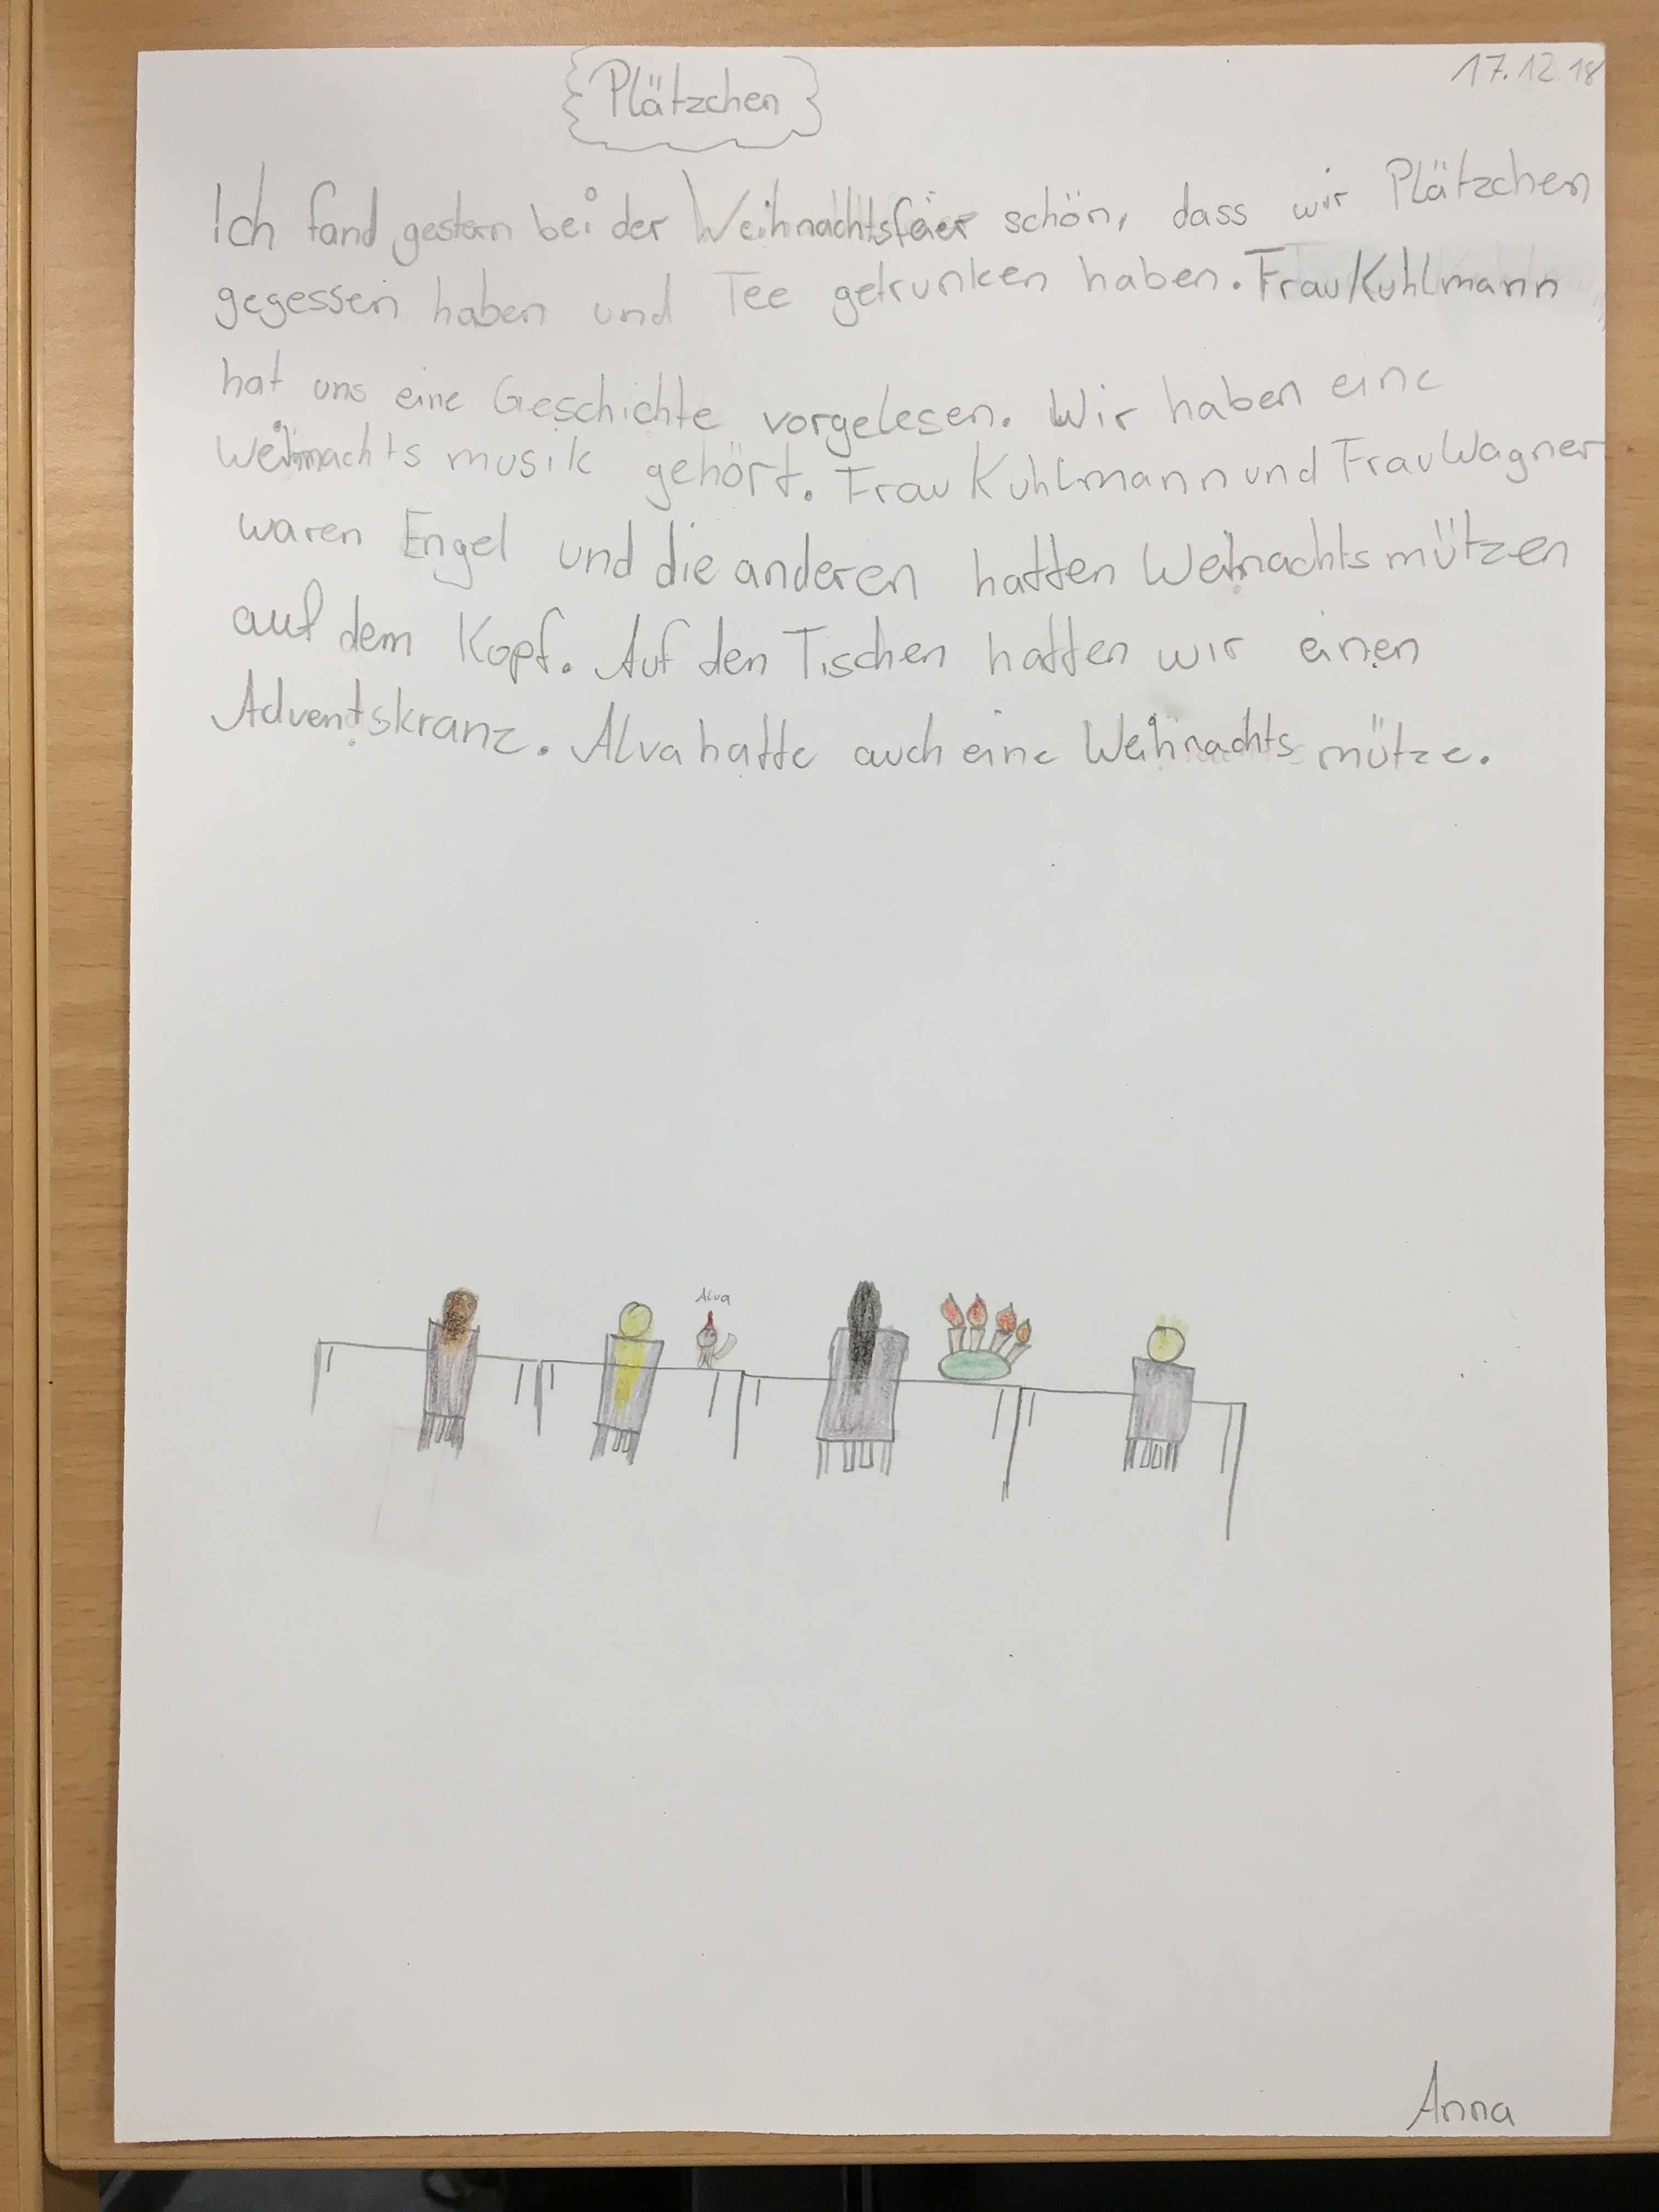 Plätzchen
17.12.18
Ich fand gestern bei der Weihnachtsfeier schön, dass wir Plätzchen
gegessen haben und Tee getrunken haben. Frau Kuhlmann
hat uns eine Geschichte vorgelesen. Wir haben eine
weihnachtsmusik gehört. Frau Kuhlmann und Frau Wagner
waren Engel und die anderen hatten Weihnachtsmützen
auf dem Kopf. Auf den Tischen hatten wir einen
Adventskranz. Alva hatte auch eine Weihnachtsmütze.
Alva
Anna